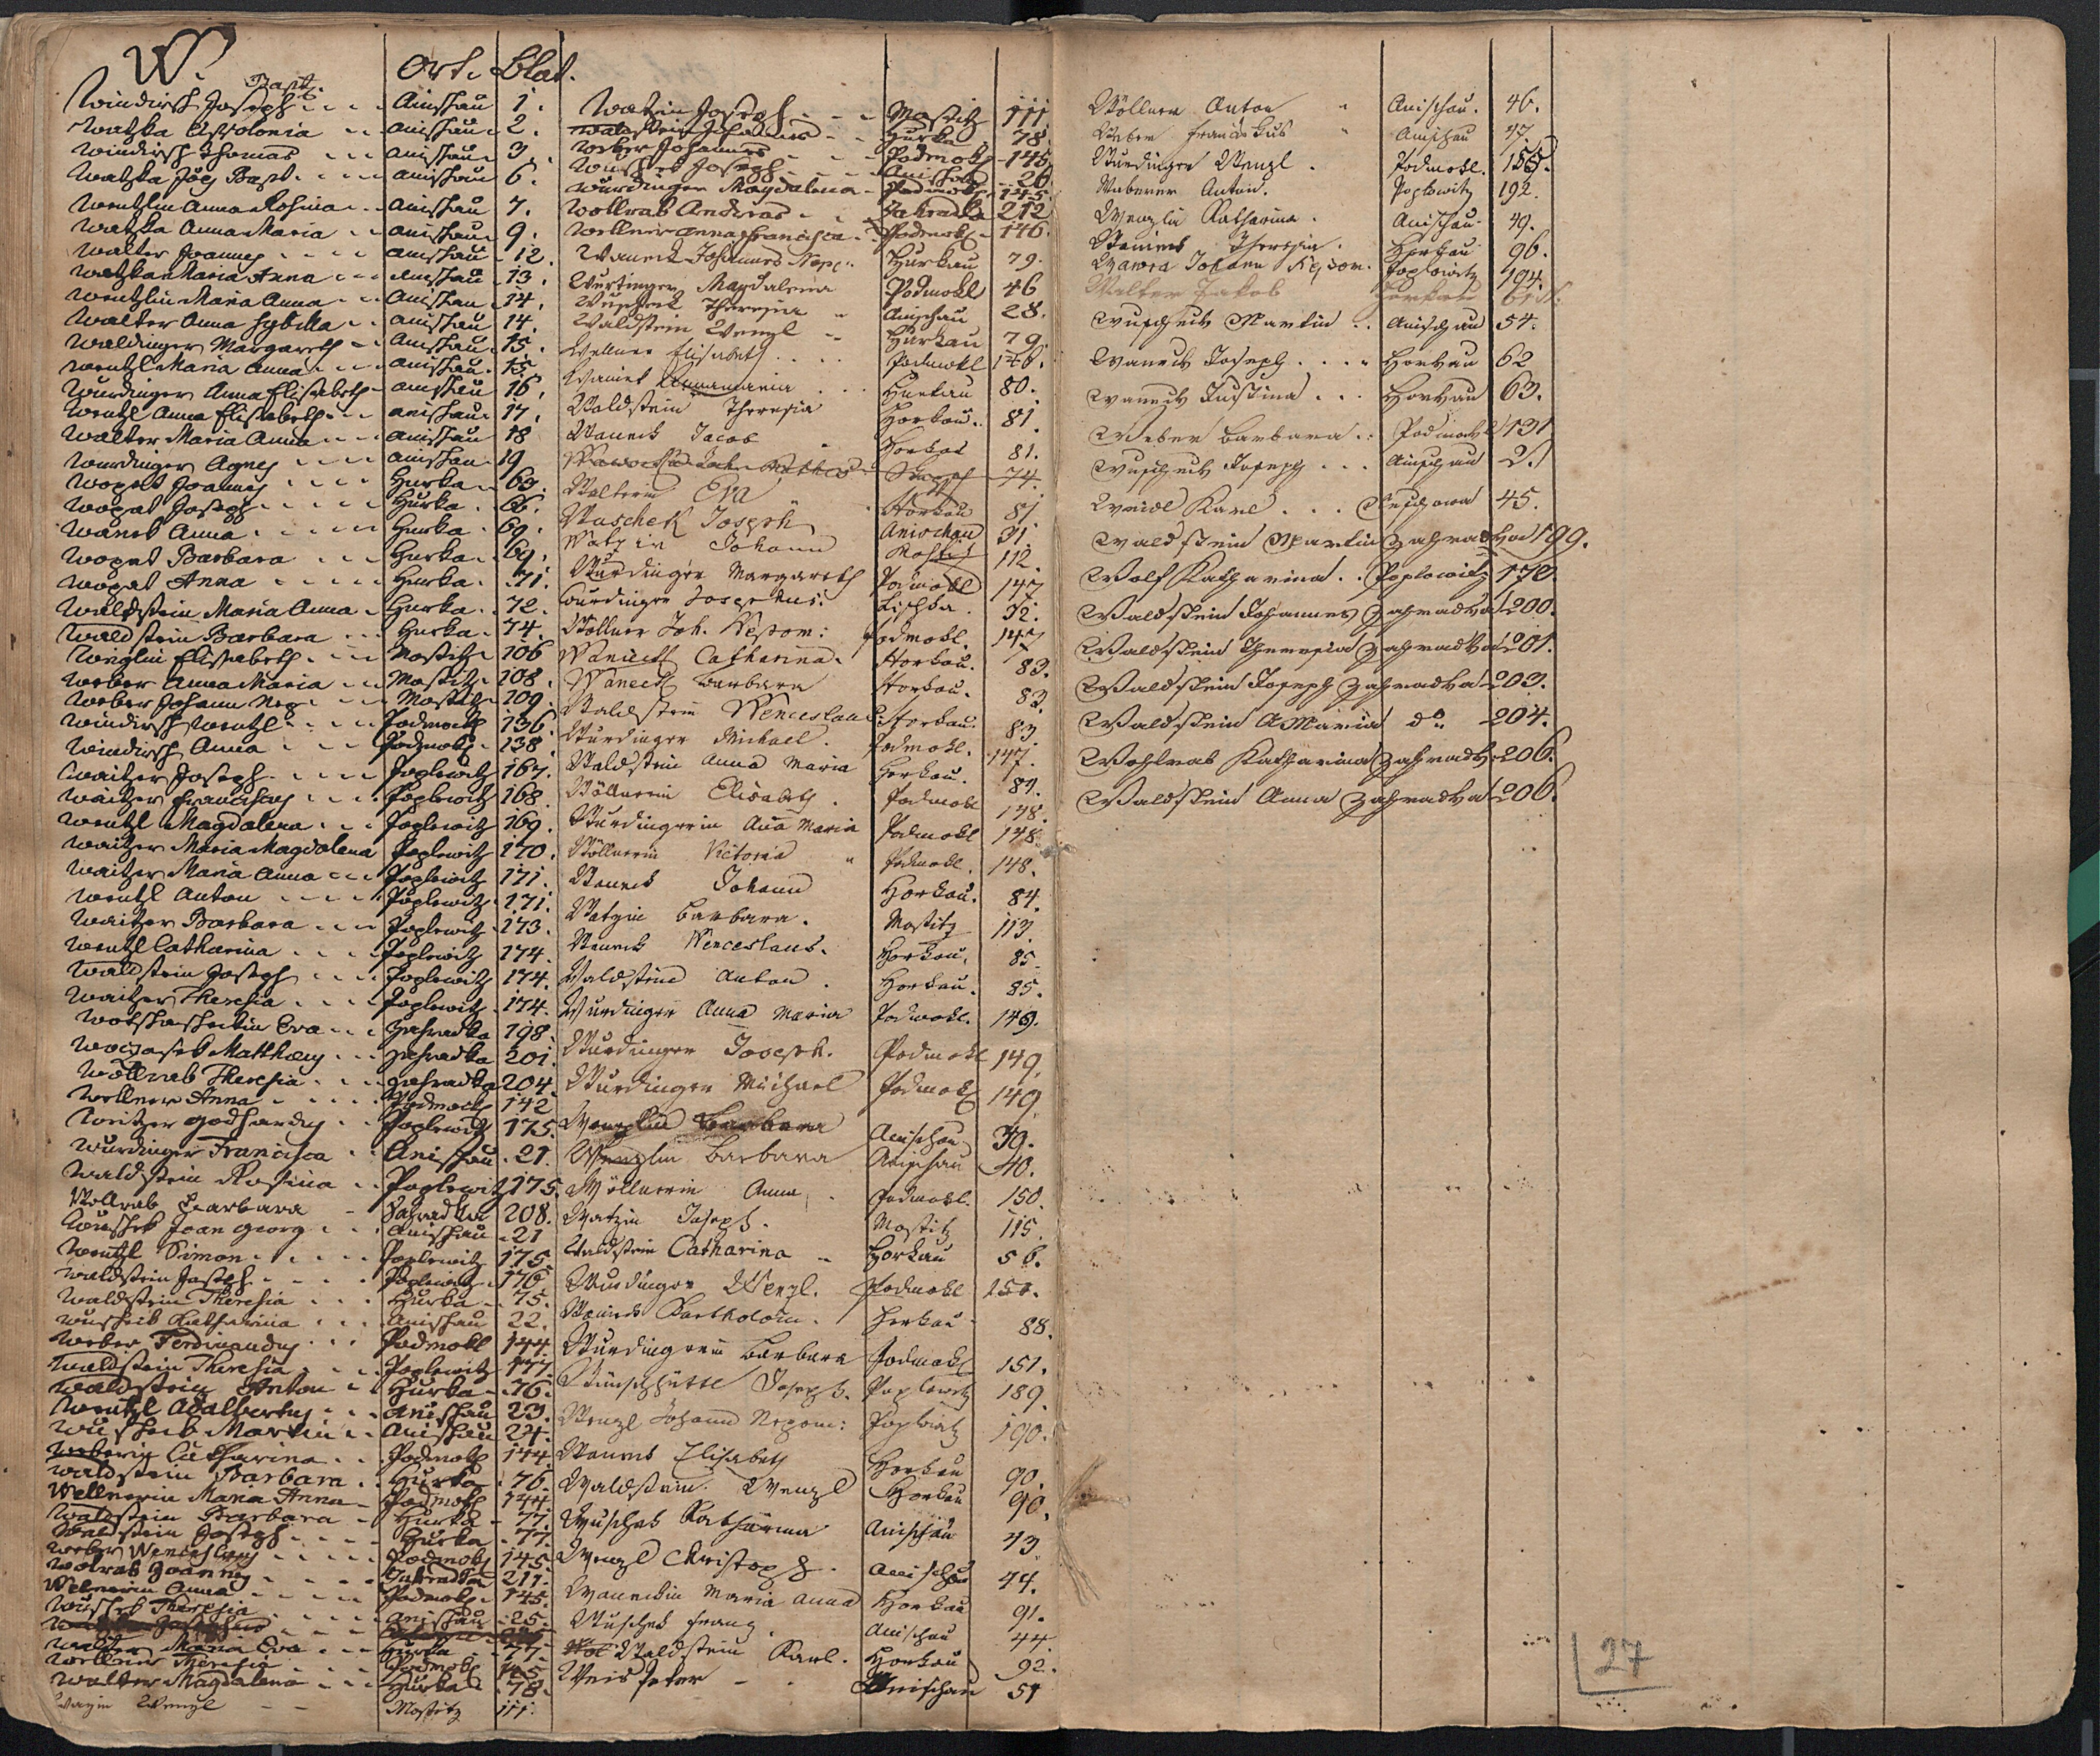 W. Ort. Blat.
Windirsch Joseph Bapt. Anischau 1.
Watzka Appolonia Anischau 2.
Windirsch Thomas Anischau 3.
Watzka Joes Bapt. Anischau 6.
Wentzlin Anna Rosina Anischau 7.
Watzka Anna Maria Anischau 9.
Walter Joannes Anischau 12.
Watzka Maria Anna Anischau 13.
Wentzlin Maria Anna Anischau 14.
Walter Anna Sybilla Anischau 14.
Waldinger Margareth Anischau 15.
Wentzl Maria Anna Anischau 15
Wurdinger Anna Elisabeth Anischau 16.
Wentzl Anna Elisabeth Anischau 17.
Walter Maria Anna Anischau 18
Wurdinger Agnes Anischau 19
Wopat Joannes Hurka
Wopat Joseph Hurka 66.
Wanek Anna Hurka 69.
Wopat Barbara Hurka 69.
Wopat Anna Hurka 71.
Waldstein Maria Anna Hurka 72.
Waldstein Barbara Hurka 74.
Elisabeth Mostitz 106
Weber Anna Maria Mostitz 108.
Weber Johann Nep Mostitz 109.
Windirsch Wentzl Podmokl 136.
Windirsch Anna Podmokl 138.
Waitzer Joseph Poplowitz 167.
Waitzer Franciscus Poplowitz 168.
Wentzl Magdalena Poplowitz 169.
Waitzer Maria Magdalena Poplowitz 170.
Waitzer Maria Anna Poplowitz 171.
Wentzl Anton Poplowitz 171.
Waitzer Barbara Poplowitz 173.
Wentzl Catharina Poplowitz 174.
Waldstein Joseph Poplowitz 174.
Waitzer Theresia Poplowitz 174.
Eva Zahradka 198.
Matthäus Zahradka 201.
Wollrab Theresia Zahradka 204.
Wellner Anna Podmokl 142
Godhardus Poplowitz 175.
Wurdinger Francisca Anischau 21.
Waldstein Rosina Poplowitz 175.
Wollrab Barbara Zahradka 208.
Wuschek Joan Georg Anischau 21
Wentzl Simon Poplowitz 175.
Waldstein Joseph Poplowitz 176
Waldstein Theresia Hurka 75.
Wuschek Catharina Anischau 22.
Weber Ferdinandus Podmokl 144.
Waldstein Theresia Poplowitz 177
Waldstein Anton Hurka 76.
Wentzl Adalbertus Anischau 23.
Wuschek Martin Anischau 24.
Weberin Catharina Podmokl 144.
Waldstein Barbara Hurka 76.
Wellnerin Maria Anna Podmokl 144.
Waldstein Barbara Hurka 77.
Waldstein Joseph Hurka 77.
Weber Wenceslaus Podmokl 145.
Wolrab Joannes Zahradka 211.
Welnerin Anna Podmokl 145.
Wuschek Theresia Anischau 25.
Walter Maria Eva Hurka 77.
Wellner Theresia Podmokl 145
Walter Magdalena Hurka 78.
Wenzl Mostitz 111.
Watzin Joseph Mostitz 111
Waldstein Johannes Hurka 78.
Weber Johannes Podmokl 145
Wuschek Joseph Anischau 26
Wurdinger Magdalena Podmokl 145.
Wollrab Andreas Zahradka 212
Wellner Anna Francisca Podmokl 146.
Wanick Johannes Nep. Hurkau 79.
Wurtinger Magdalena Podmokl 46
Wuschek Theresia Anischau 28.
Waldstein Wenzl Hurkau 79.
Wellner Elisabeth Podmokl 146.
Wanick Annamaria Hurkau 80.
Waldstein Theresia Horkau 81.
Wanick Jacob Horkau 81.
74.
Walterin Eva Horkau 81
Waschek Joseph Anischau 31.
Watzin Johann Mostitz 112.
Wurdinger Margareth Podmokl 147
Wurdinger Josephus. Lischka 32.
Wöllner Joh. Nepom: Podmokl. 147
Wanieck Catharina. Horkau. 83.
Waneck Barbara Horkau. 83.
Waldstein Wenceslaus Horkau. 83
Wurdinger Michael. Podmokl. 147.
Waldstein Anna Maria Horkau. 84.
Wöllnerin Elisabeth. Podmokl 148.
Wurdingerin Ana Maria Podmokl 148.
Wöllnerin Victoria Podmokl. 148.
Wanick Johann Horkau. 84.
Watzin Barbara. Mostitz 113.
Wanick Wenceslaus. Horkau. 85.
Waldstein Anton. Horkau. 85.
Wurdinger Anna Maria Podmokl. 149.
Wurdinger Joseph. Podmokl 149.
Wurdinger Michael Podmokl 149.
Wenzlin Barbara Anischau 39.
Wenzlin Barbara Anischau 40.
Wöllnerin Anna Podmokl. 150.
Watzin Joseph. Mostitz 115.
Waldstein Catharina Horkau 56.
Wurdinger Wenzl. Podmokl 150.
Wanick Bartholom. Horkau 88.
Wurdingerin Barbara Podmokl 151.
Joseph. Poplowitz 189.
Wenzl Johann Nepom: Poplowitz 190.
Wanick Elisabeth Horkau 90.
Waldstein Wenzl Horkau 90.
Wuschek Katharina Anischau 43.
Wenzl Christoph. Anischau 44.
Wanickin Maria Anna Horkau 91.
Wuschek Franz. Anischau 44.
Waldstein Karl. Horkau 92.
Weis Peter Anischau 51
Wöllner Anton Anischau. 46.
Weber Franciskus Anischau 47
Wurdinger Wenzl. Podmokl. 155.
Weberer Anton. Poplowitz 192.
Wenzlin Katharina. Anischau 49.
Wanick Theresia. Horkau 96.
Wawra Johann Nepom. Poplowitz 194.
Walter Jakob Horkau
Wuscheck Martin Anischau 54.
Waneck Joseph Horkau 62
Waneck Justina Horkau 63.
Weber Barbara Podmokl 131
Wuscheck Joseph Anischau 2.
Weidl Karl 45.
Waldstein Martin Zahradka 199.
Wolf Katharina Poplowitz 178.
Waldstein Johannes Zahradka 200.
Waldstein Theresia Zahradka 201.
Waldstein Joseph Zahradka 203.
Waldstein A Maria do 204.
Wohlrab Katharina Zahradka 206.
Waldstein Anna Zahradka 206.
27